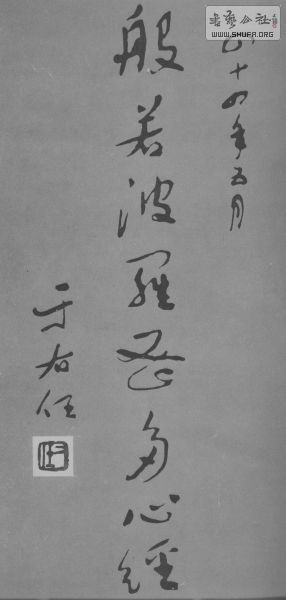 十四年五月
般若波羅蜜多心經
于右任
書藝公社
WWW.SHUFA.ORG